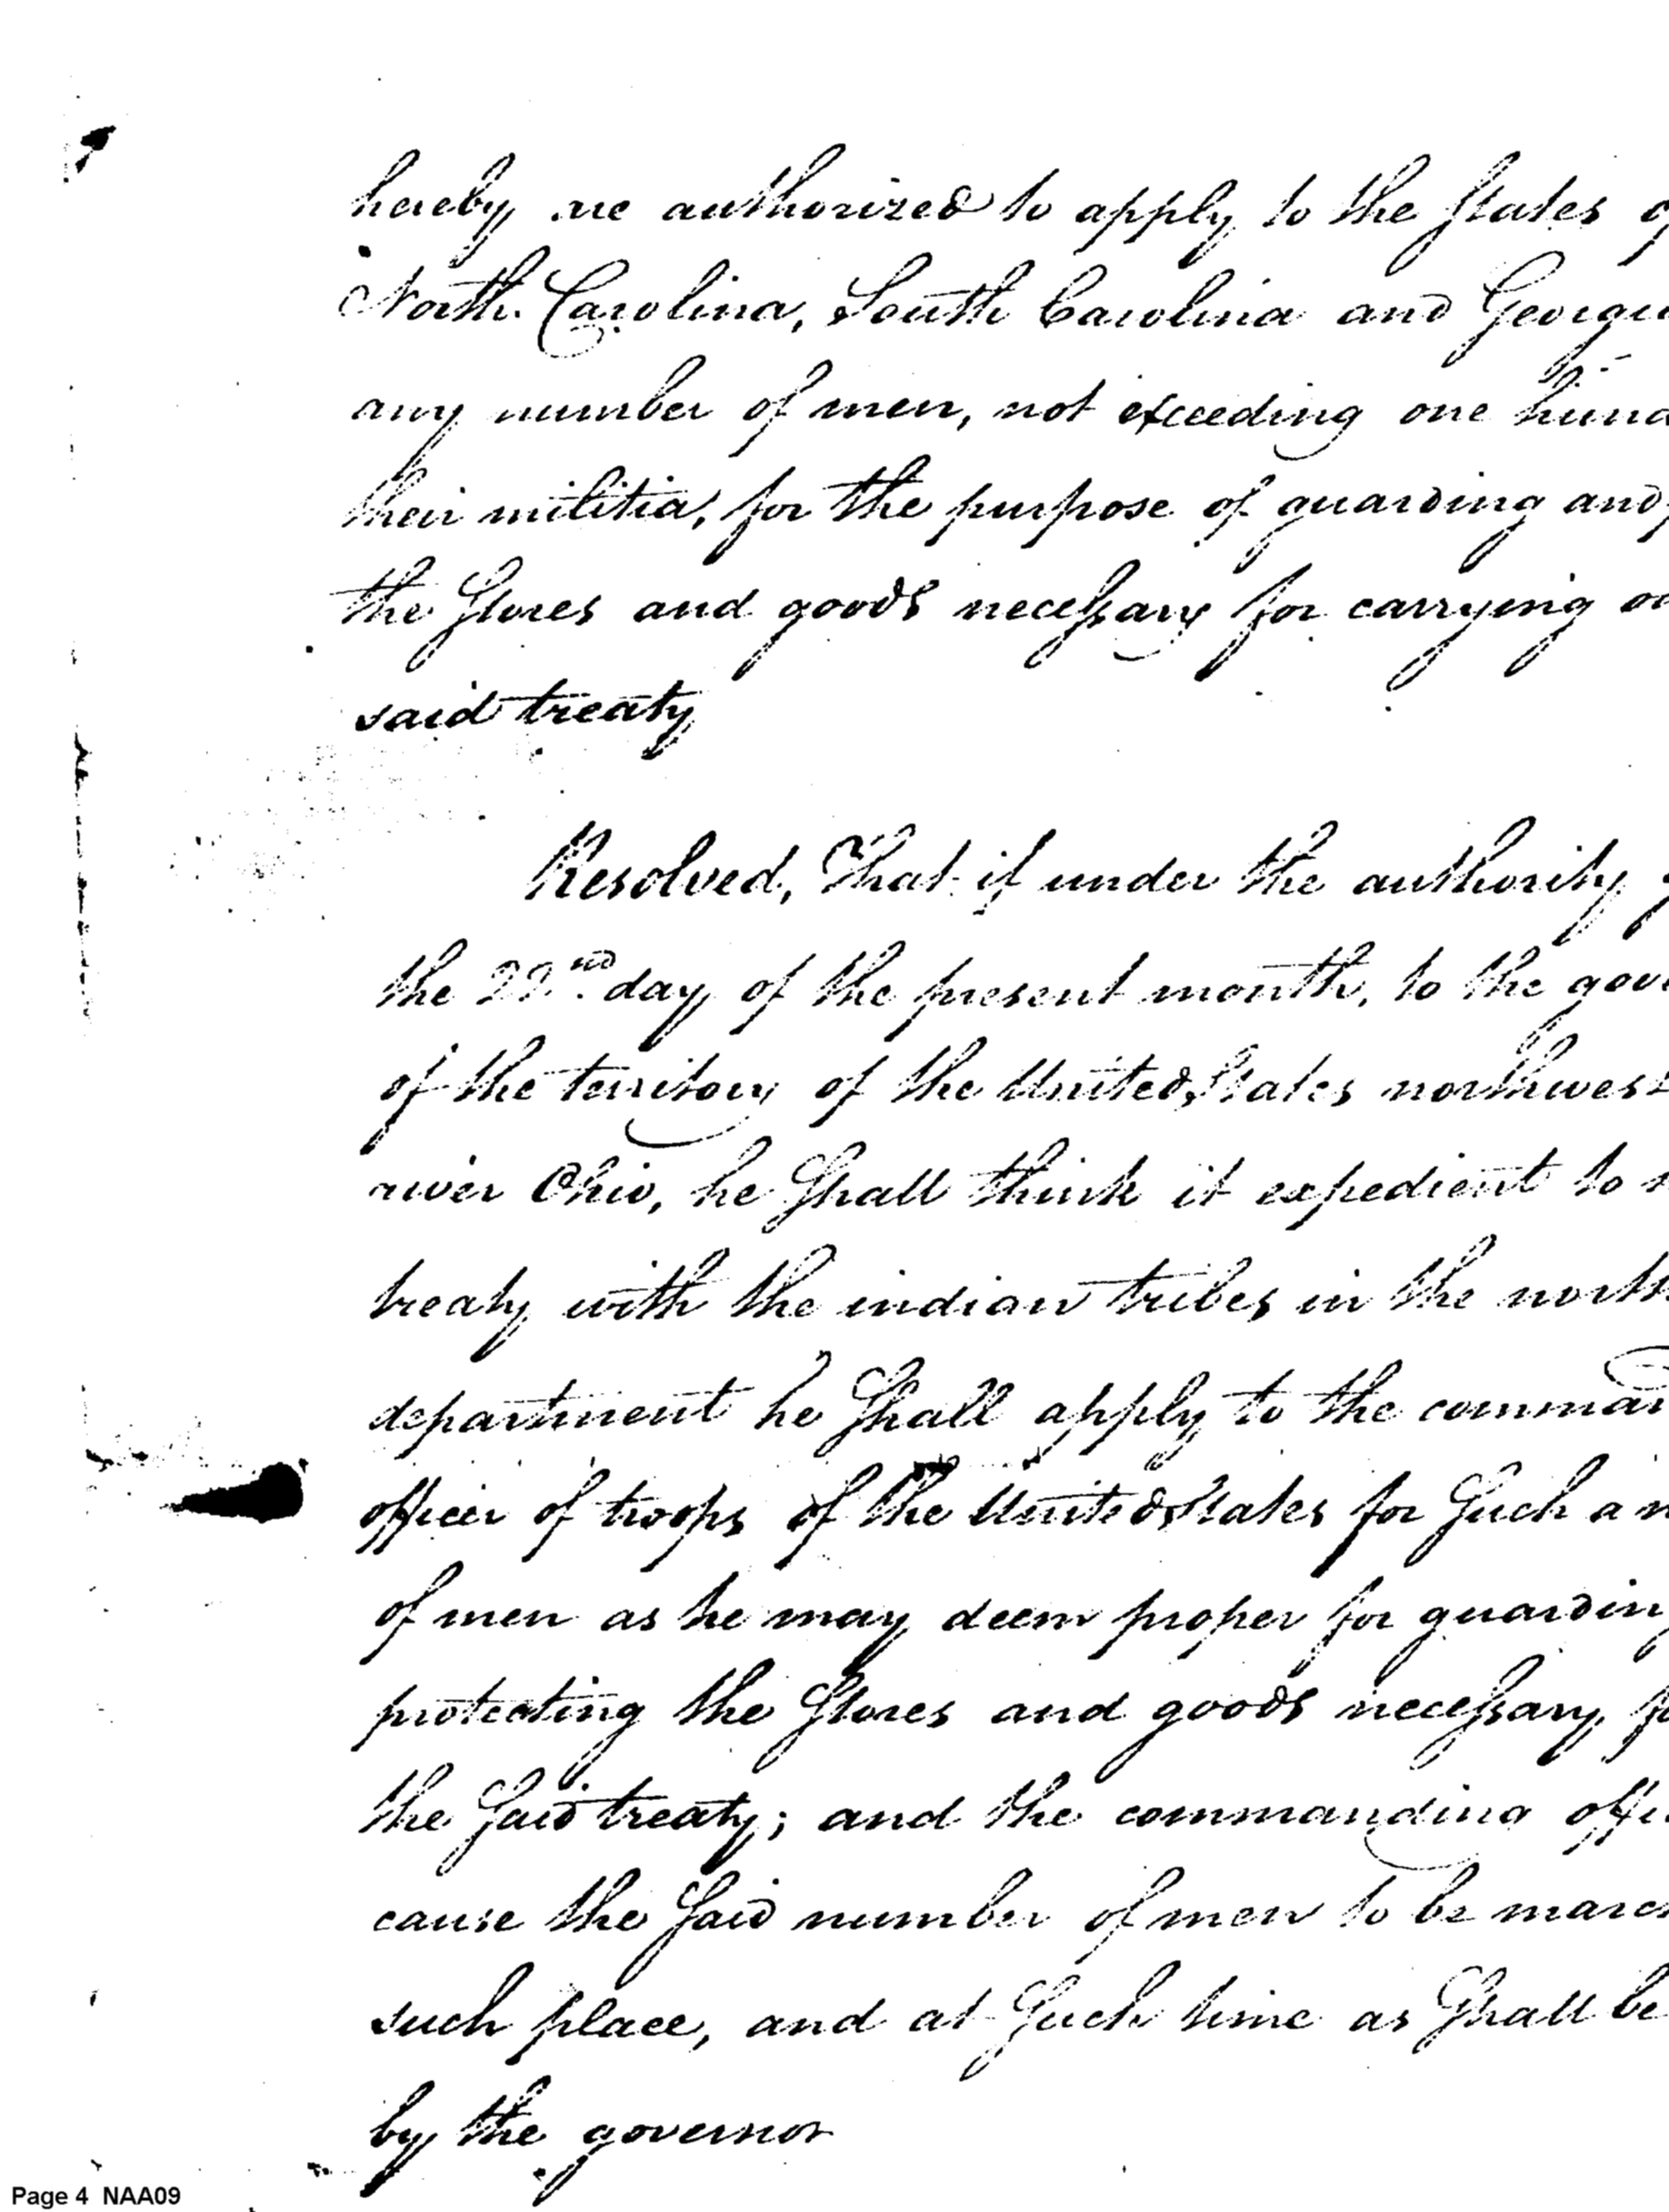 hereby are authorized to apply to the states
North Carolina, South Carolina and Georgi
any number of men, not exceeding one hund
their militia, for the purpose of guarding and
the stores and goods necessary for carrying
said treaty
Resolved, That if under the authority
the 22nd day of the present month, to the gov
of the territory of the United States northwest
river Ohio, he shall think it expedient to
treaty with the indian tribes in the north
department he shall apply to the comman
officer of troops of the United States for such a
of men as he may deem proper for guardin
protecting the stores and goods necessary
the said treaty; and the commanding offi
cause the said number of men to be march
such place, and at such time as shall be
by the governor
Page 4 NAA09